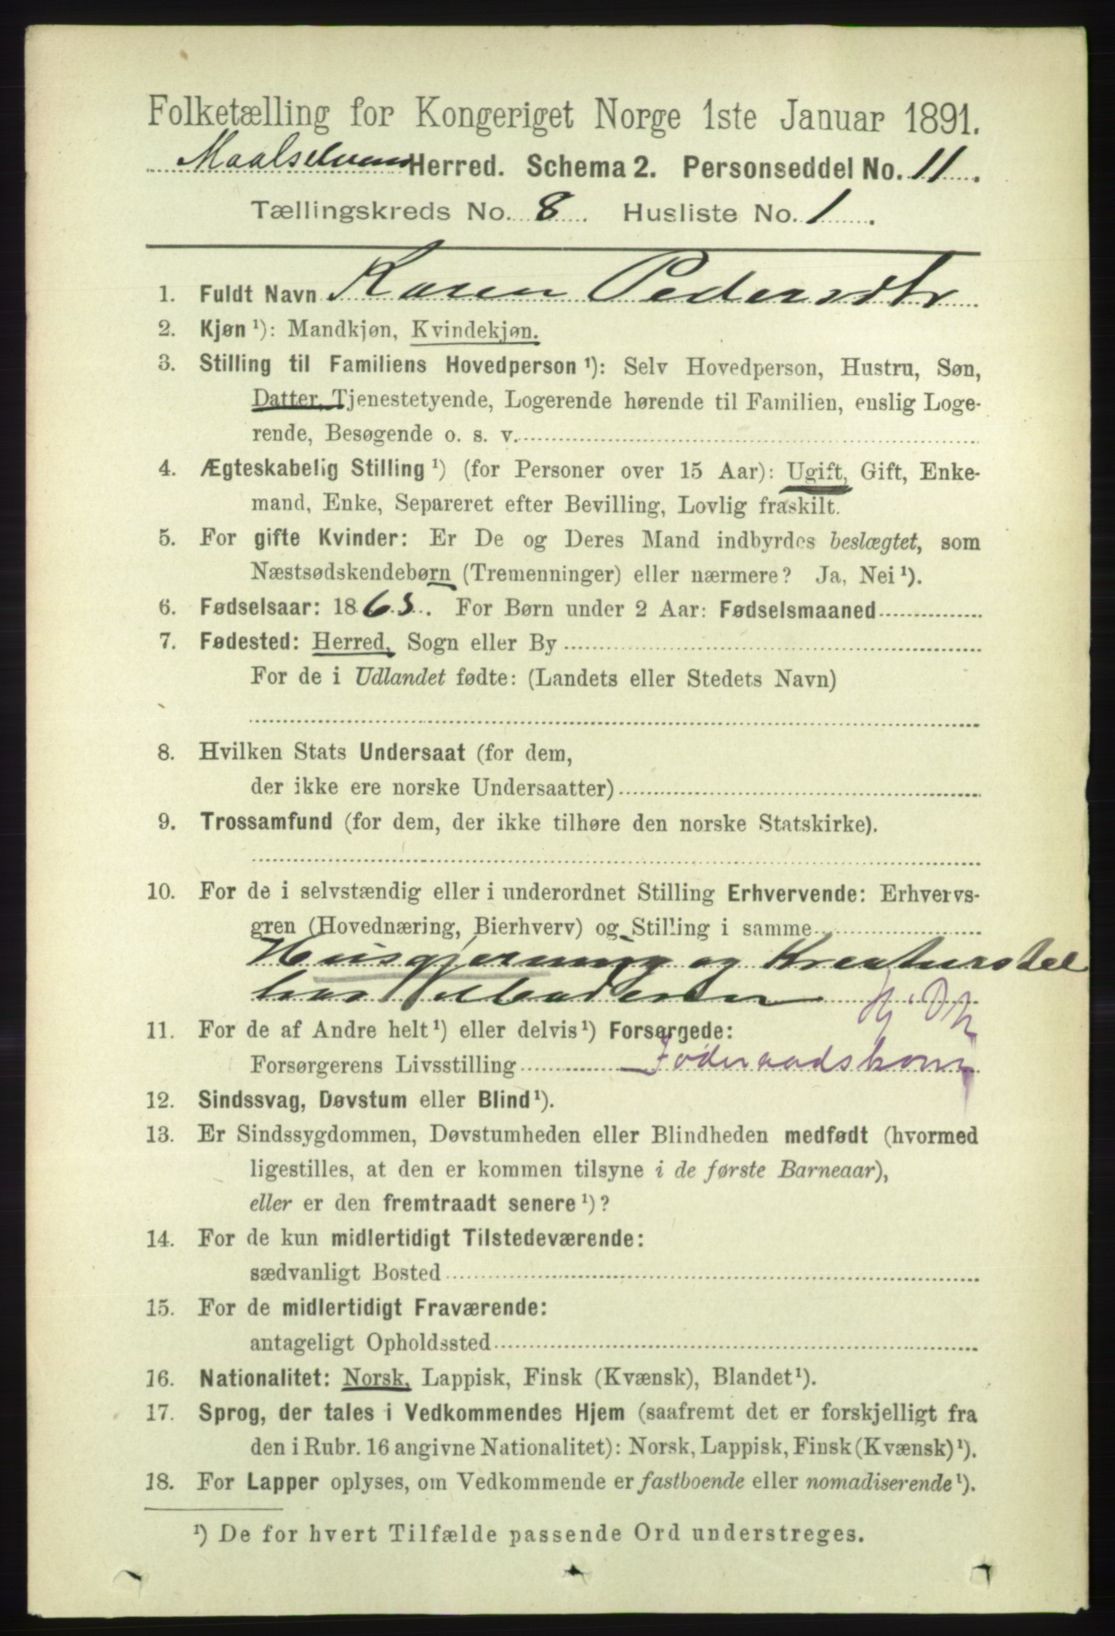 Folketælling for Kongeriget Norge 1ste Januar 1891.
Maalselvens Herred. Schema 2. Personseddel No. 11.
Tællingskreds No. 8. Husliste No. 1.
1. Fuldt Navn Karen Pedersdtr
2. Kjøn ¹): Mandkjøn, Kvindekjøn.
3. Stilling til Familiens Hovedperson ¹): Selv Hovedperson, Hustru, Søn,
Datter, Tjenestetyende, Logerende hørende til Familien, enslig Loge-
rende, Besøgende o. s. v.
4. Ægteskabelig Stilling ¹) (for Personer over 15 Aar): Ugift, Gift, Enke-
mand, Enke, Separeret efter Bevilling, Lovlig fraskilt.
5. For gifte Kvinder: Er De og Deres Mand indbyrdes beslægtet, som
Næstsødskendebørn (Tremenninger) eller nærmere? Ja, Nei ¹).
6. Fødselsaar: 1863. For Børn under 2 Aar: Fødselsmaaned
7. Fødested: Herred, Sogn eller By
For de i Udlandet fødte: (Landets eller Stedets Navn)
8. Hvilken Stats Undersaat (for dem,
der ikke ere norske Undersaatter)
9. Trossamfund (for dem, der ikke tilhøre den norske Statskirke).
10. For de i selvstændig eller i underordnet Stilling Erhvervende: Erhvervs-
gren (Hovednæring, Bierhverv) og Stilling i samme
Husgjerning og Kreaturstel
hos
11. For de af Andre helt ¹) eller delvis ¹) Forsørgede:
Forsørgerens Livsstilling Føderaadskone
12. Sindssvag, Døvstum eller Blind ¹).
13. Er Sindssygdommen, Døvstumheden eller Blindheden medfødt (hvormed
ligestilles, at den er kommen tilsyne i de første Barneaar),
eller er den fremtraadt senere ¹)?
14. For de kun midlertidigt Tilstedeværende:
sædvanligt Bosted
15. For de midlertidigt Fraværende:
antageligt Opholdssted
16. Nationalitet: Norsk, Lappisk, Finsk (Kvænsk), Blandet ¹).
17. Sprog, der tales i Vedkommendes Hjem (saafremt det er forskjelligt fra
den i Rubr. 16 angivne Nationalitet): Norsk, Lappisk, Finsk (Kvænsk) ¹).
18. For Lapper oplyses, om Vedkommende er fastboende eller nomadiserende ¹).
¹) De for hvert Tilfælde passende Ord understreges.